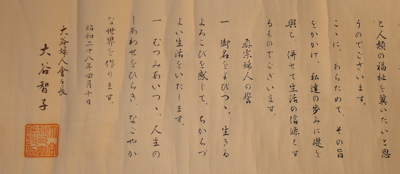 と人類の福祉を冀いたいと思
うのでございます。
ここに、あらためて、その旨
をかかげ、私達の歩みに礎を
興し、併せて生活の信源とす
るものでございます。
真宗婦人の誓
一 御名をよびつゝ、生きる
よろこびを感じて、ちからづ
よい生活をいたします。
一 むつみあいつゝ、人生の
しあわせをひらき、なごやか
な世界を作ります。
昭和二十八年四月十日
大谷婦人會々長
大谷智子